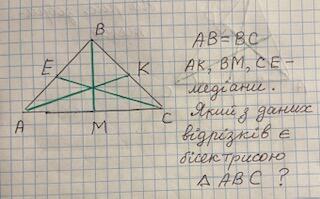 B
E
K
A
M
C
AB = BC
AK, BM, CE -
медіани.
Який з даних
відрізків є
бісектрисою
△ ABC ?